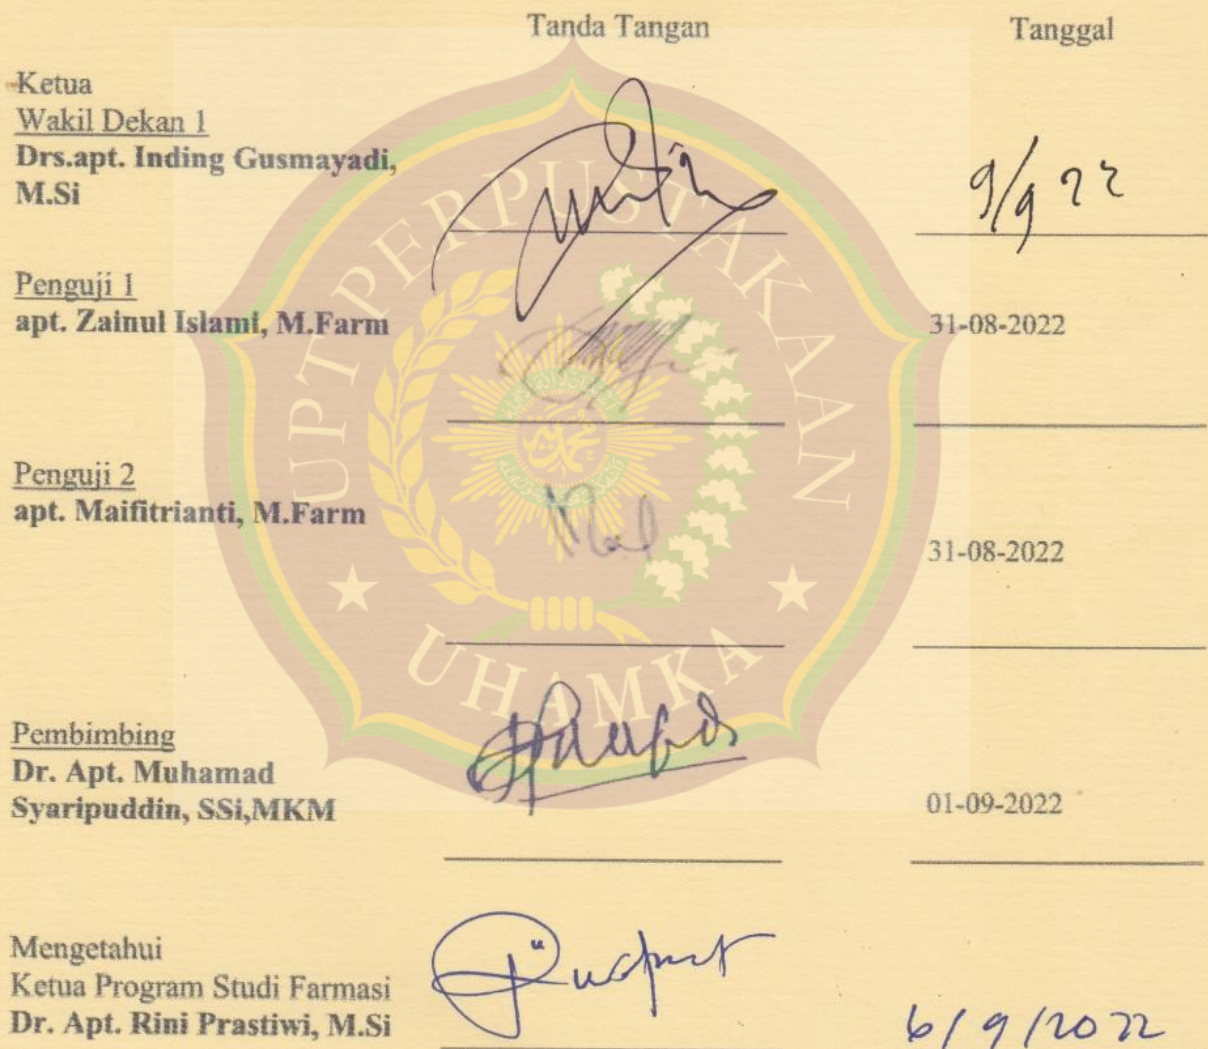 Tanda Tangan Tanggal
Ketua
Wakil Dekan 1
Drs.apt. Inding Gusmayadi,
M.Si
9/9 22
Penguji 1
apt. Zainul Islami, M.Farm
31-08-2022
Penguji 2
apt. Maifitrianti, M.Farm
31-08-2022
Pembimbing
Dr. Apt. Muhamad
Syaripuddin, SSi,MKM
01-09-2022
Mengetahui
Ketua Program Studi Farmasi
Dr. Apt. Rini Prastiwi, M.Si
6/9/2022
UPT PERPUSTAKAAN
UHAMKA